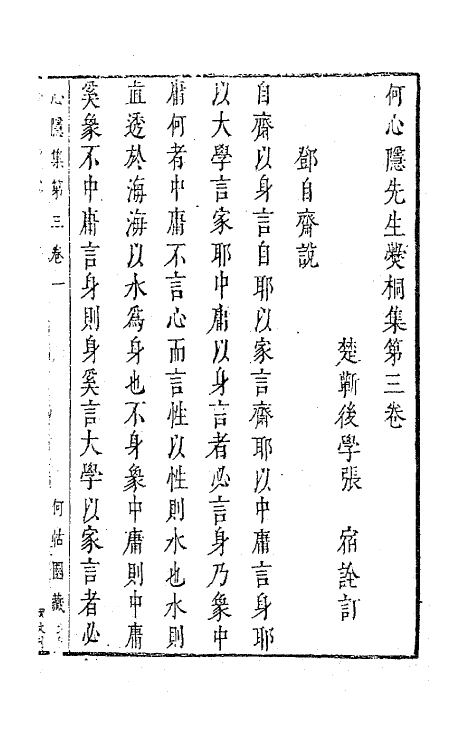 何心隱先生爨桐集第三卷
楚蘄後學張 宿詮訂
鄧自齋說
自齋以身言自耶以家言齋耶以中庸言身耶
以大學言家耶中庸以身言者必言身乃象中
庸何者中庸不言心而言性以性則水也水則
直透於海海以水為身也不身象中庸則中庸
奚象不中庸言身則身奚言大學以家言者必
心隱集第三卷一
何 園藏